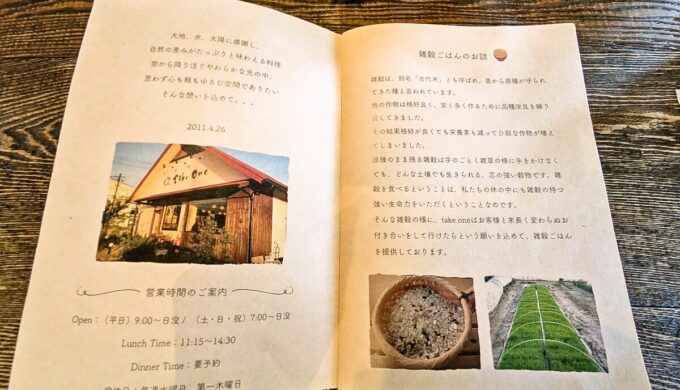 大地、水、太陽に感謝し、
自然の恵みがたっぷりと味わえる料理
窓から降り注ぐやわらかな光の中、
思わず心も頬もゆるむ空間でありたい
そんな想いを込めて、、、
2011.4.26
take one
営業時間のご案内
Open：（平日）9:00～日没 / （土・日・祝）7:00～日没
Lunch Time：11:15～14:30
Dinner Time：要予約
定休日：毎週水曜日、第一木曜日
雑穀ごはんのお話
雑穀は、別名「古代米」とも呼ばれ、昔から原種が守られ
てきた種と言われています。
他の作物は格好良く、安く多く作るために品種改良を繰り
返してきました。
その結果格好が良くても栄養素も減ってひ弱な作物が増え
てしまいました。
原種のまま残る雑穀は字のごとく雑草の様に手をかけなく
ても、どんな土壌でも生きられる、芯の強い穀物です。雑
穀を食べるということは、私たちの体の中にも雑穀の持つ
強い生命力をいただくということなのです。
そんな雑穀の様に、take oneはお客様と末長く変わらぬお
付き合いをして行けたらという願いを込めて、雑穀ごはん
を提供しております。